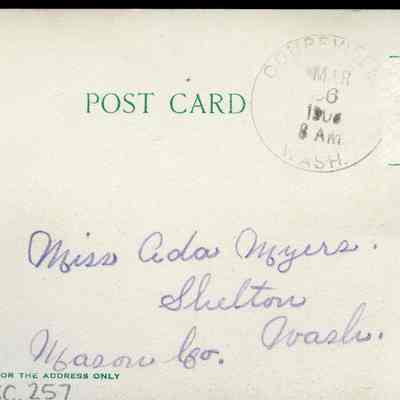 POST CARD
MAR
6
8 AM
WASH.
Miss Ada Myers.
Shelton
Wash.
Mason Co.
OR THE ADDRESS ONLY
C. 257